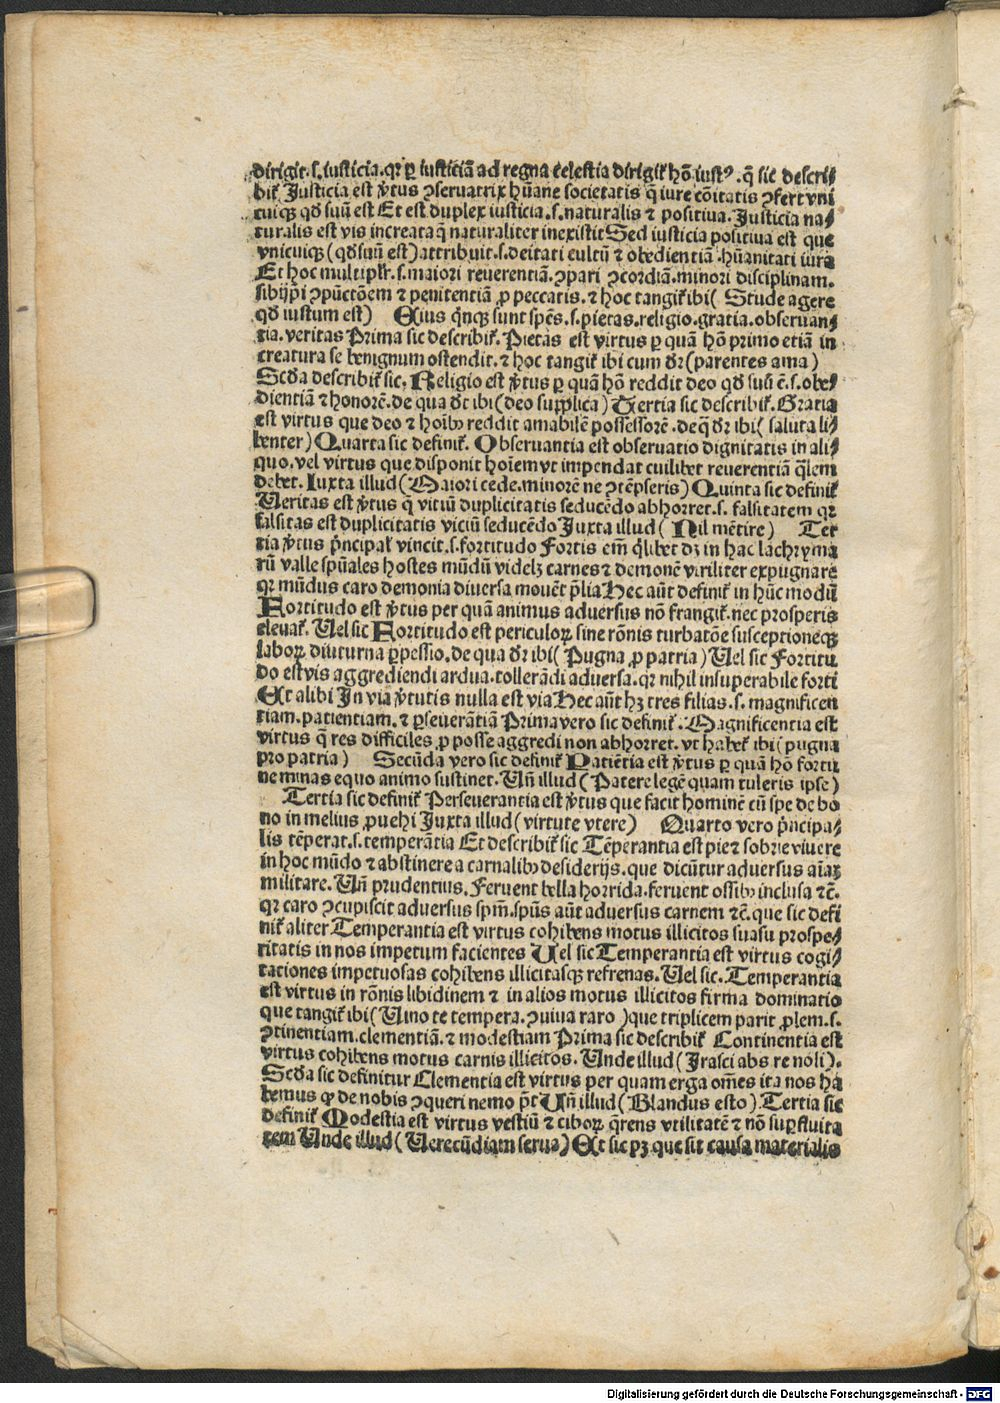 dirigit.s.iusticia.qꝛ ꝑ iusticiã ad regna celestia dirigit᷑ hõ iustꝰ.q̃ sic descri⸗
bit᷑ Justicia est ꝟtus ꝯseruatrix hũane societatis q̃ iure cõitatis ꝯfert vni
cuiqꝫ qd̃ suũ est Et est duplex iusticia.s.naturalis ⁊ positiua.Justicia na⸗
turalis est vis increata q̃ naturaliter inexistit Sed iusticia positiua est que
vnicuiqꝫ (qd̃ suũ est) attribuit.s.deitati cultũ ⁊ obedientiã.hũanitati iura
Et hoc multipłr.s.maiori reuerentiã.ꝯpari ꝯcordiã.minori disciplinam.
sibijp̃i ꝯpũctõem ⁊ penitentiã ꝓ peccatis.⁊ hoc tangit᷑ ibi( Stude agere
qd̃ iustum est) Eius q̃nqꝫ sunt spẽs.s.pietas.religio.gratia.obseruan⸗
tia.veritas Prima sic describit᷑. Pietas est virtus ꝑ quã hõ primo etiã in
creatura se benignum ostendit.⁊ hoc tangit᷑ ibi cum dꝛ̃(parentes ama)
Scd̃a describit᷑ sic. Religio est ꝟtus ꝑ quã hõ reddit deo qd̃ suũ ẽ.s.obe⸗
dientiã ⁊ honorẽ.de qua dꝛ̃ ibi(deo supplica) Tertia sic describit᷑. Gratia
est virtus que deo ⁊ hoĩbꝫ reddit amabilẽ possessorẽ.de q̃ dꝛ̃ ibi( saluta li⸗
benter) Quarta sic definit᷑. Obseruantia est obseruatio dignitatis in ali⸗
quo.vel virtus que disponit hoĩem vt impendat cuilibet reuerentiã q̃lem
debet. Iuxta illud(Maiori cede.minorẽ ne ꝯtẽpseris) Quinta sic definit᷑
Ueritas est ꝟtus q̃ vitiũ duplicitatis seducẽdo abhorret.s. falsitatem qꝛ
falsitas est duplicitatis viciũ seducẽdo Juxta illud( Nil mẽtire) Ter
tia ꝟtus p̃ncipał vincit.s.fortitudo Fortis em̃ q̃libet dꝫ in hac lachryma
rũ valle spũales hostes mũdũ videlꝫ carnes ⁊ demonẽ viriliter expugnare
qꝛ mũdus caro demonia diuersa mouẽt p̃lia Hec aũt definit᷑ in hũc modũ
Fortitudo est ꝟtus per quã animus aduersus nõ frangit᷑.nec prosperis
eleuat᷑. Uel sic Fortitudo est periculoꝝ sine rõnis turbatõe susceptioneqꝫ
laboꝝ diuturna ꝑpessio.de qua dꝛ̃ ibi( Pugna ꝓ patria) Uel sic Fortitu
do est vis aggrediendi ardua.tollerãdi aduersa.qꝛ nihil insuperabile forti
Et alibi In via ꝟtutis nulla est via Hec aũt hꝫ tres filias.s. magnificen
tiam.patientiam.⁊ ꝑseuerãtiã Prima vero sic definit᷑. Magnificentia est
virtus q̃ res difficiles ꝓ posse aggredi non abhorret.vt habet᷑ ibi(pugna
pro patria) Secũda vero sic definit᷑ Patiẽtia est ꝟtus ꝑ quã hõ fortu
ne minas equo animo sustinet. Uñ illud(Patere legẽ quam tuleris ipse)
Tertia sic definit᷑ Perseuerantia est ꝟtus que facit hominẽ cũ spe de bo
no in melius ꝓuehi Juxta illud(virtute vtere) Quarto vero p̃ncipa⸗
lis tẽperat.s.temperãtia Et describit᷑ sic Tẽperantia est pie ⁊ sobrie viuere
in hoc mũdo ⁊ abstinere a carnalibꝫ desiderijs.que dicũtur aduersus aĩaꝫ
militare. Uñ prudentius. Feruent bella horrida.feruent ossibꝫ inclusa ⁊c̃.
qꝛ caro ꝯcupiscit aduersus spm̃.spũs aũt aduersus carnem ⁊c̃.que sic defi
nit᷑ aliter Temperantia est virtus cohibens motus illicitos suasu prospe⸗
ritatis in nos impetum facientes Uel sic Temperantia est virtus cogi⸗
tationes impetuosas cohibens illicitasqꝫ refrenas.Uel sic. Temperantia
est virtus in rõnis libidinem ⁊ in alios motus illicitos firma dominatio
que tangit᷑ ibi(Uino te tempera.ꝯuiua raro )que triplicem parit ꝓlem.s.
ꝯtinentiam.clementiã.⁊ modestiam Prima sic describit᷑ Continentia est
virtus cohibens motus carnis illicitos. Unde illud(Irasci abs re noli).
Scd̃a sic definitur Clementia est virtus per quam erga om̃es ita nos ha
bemus ꝙ de nobis ꝯqueri nemo p̃t Uñ illud(Blandus esto).Tertia sic
definit᷑ Modestia est virtus vestiũ ⁊ ciboꝝ q̃rens vtilitatẽ ⁊ nõ suꝑfluita
tem Unde illud(Uerecũdiam serua) Et sic pꝫ que sit causa materialis
Digitalisierung gefördert durch die Deutsche Forschungsgemeinschaft - DFG